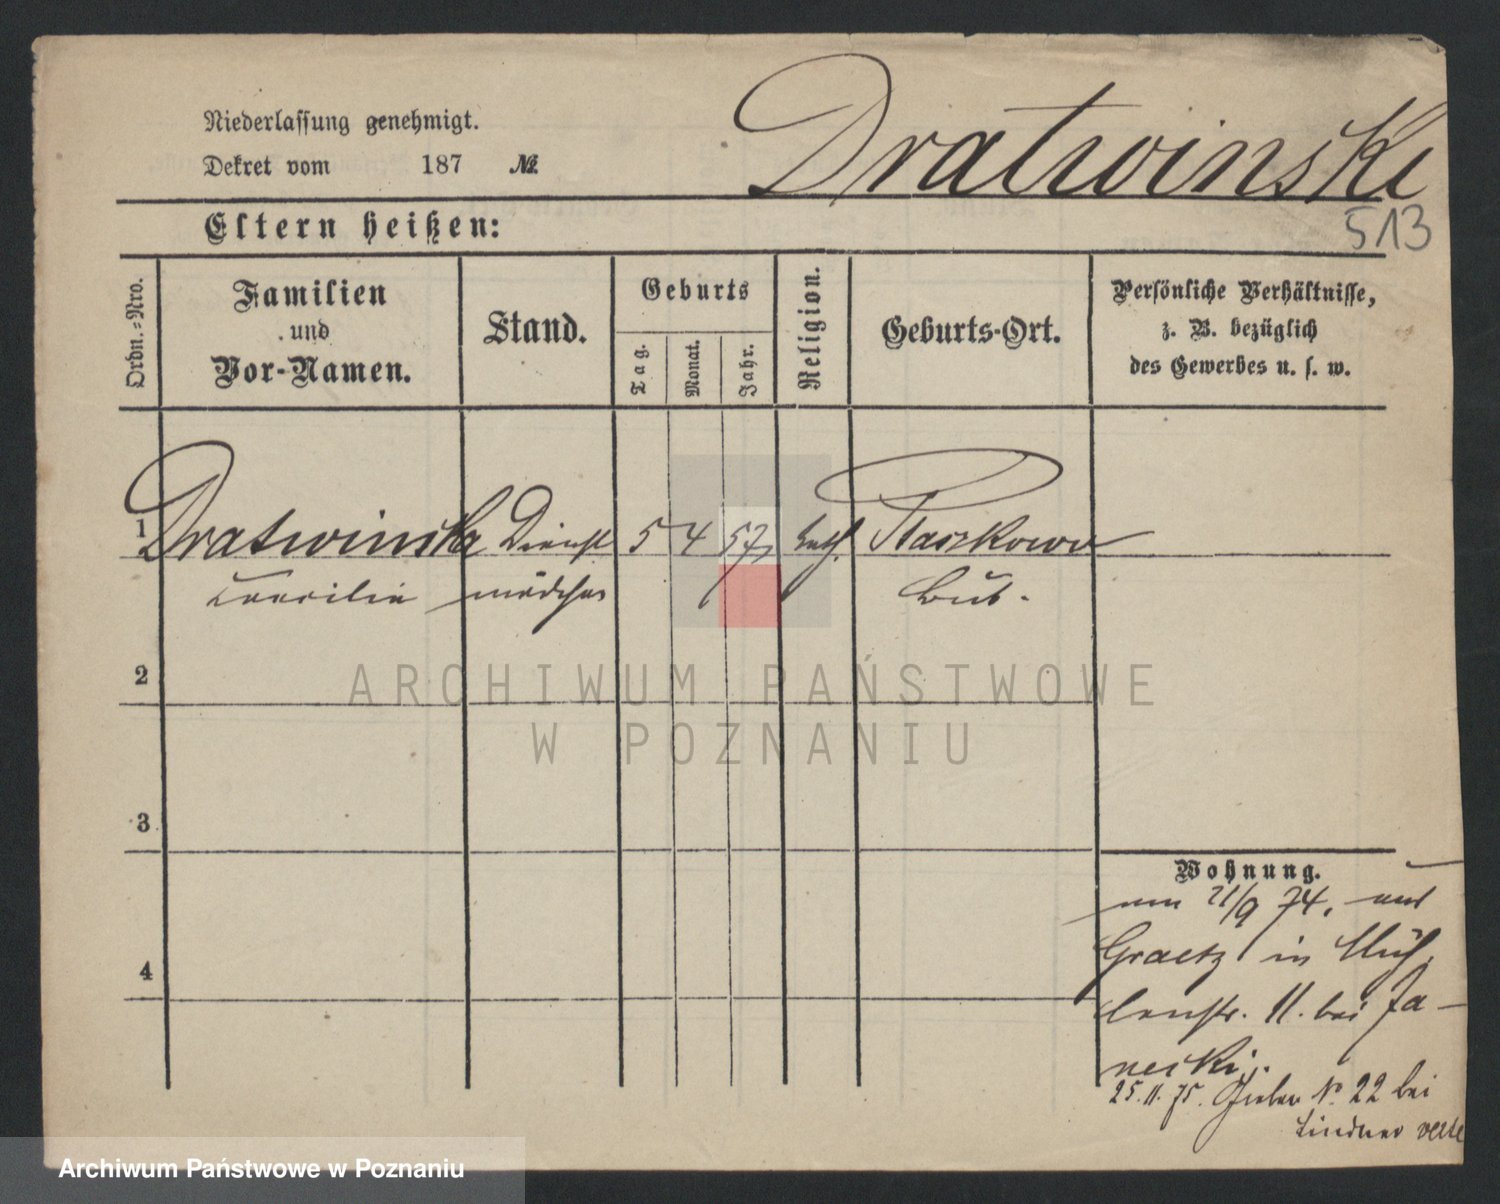 Niederlassung genehmigt.
Dekret vom 187 №
Dratwinski
513
Eltern heißen:
Ordn.-Nro.
Familien
und
Vor-Namen.
Stand.
Geburts
Tag.
Monat.
Jahr.
Religion.
Geburts-Ort.
Persönliche Verhältnisse,
z. B. bezüglich
des Gewerbes u. s. w.
1 Dratwinska Dienst 5 4 57, kath. Raszkowo
mädchen
2
3
4
Wohnung.
am 21/9 74. aus
Graetz in Müh
lenstr. 11. bei Ja-
neski.
25.11.75. № 22 bei
Lindner
ARCHIWUM PAŃSTWOWE
W POZNANIU
Archiwum Państwowe w Poznaniu